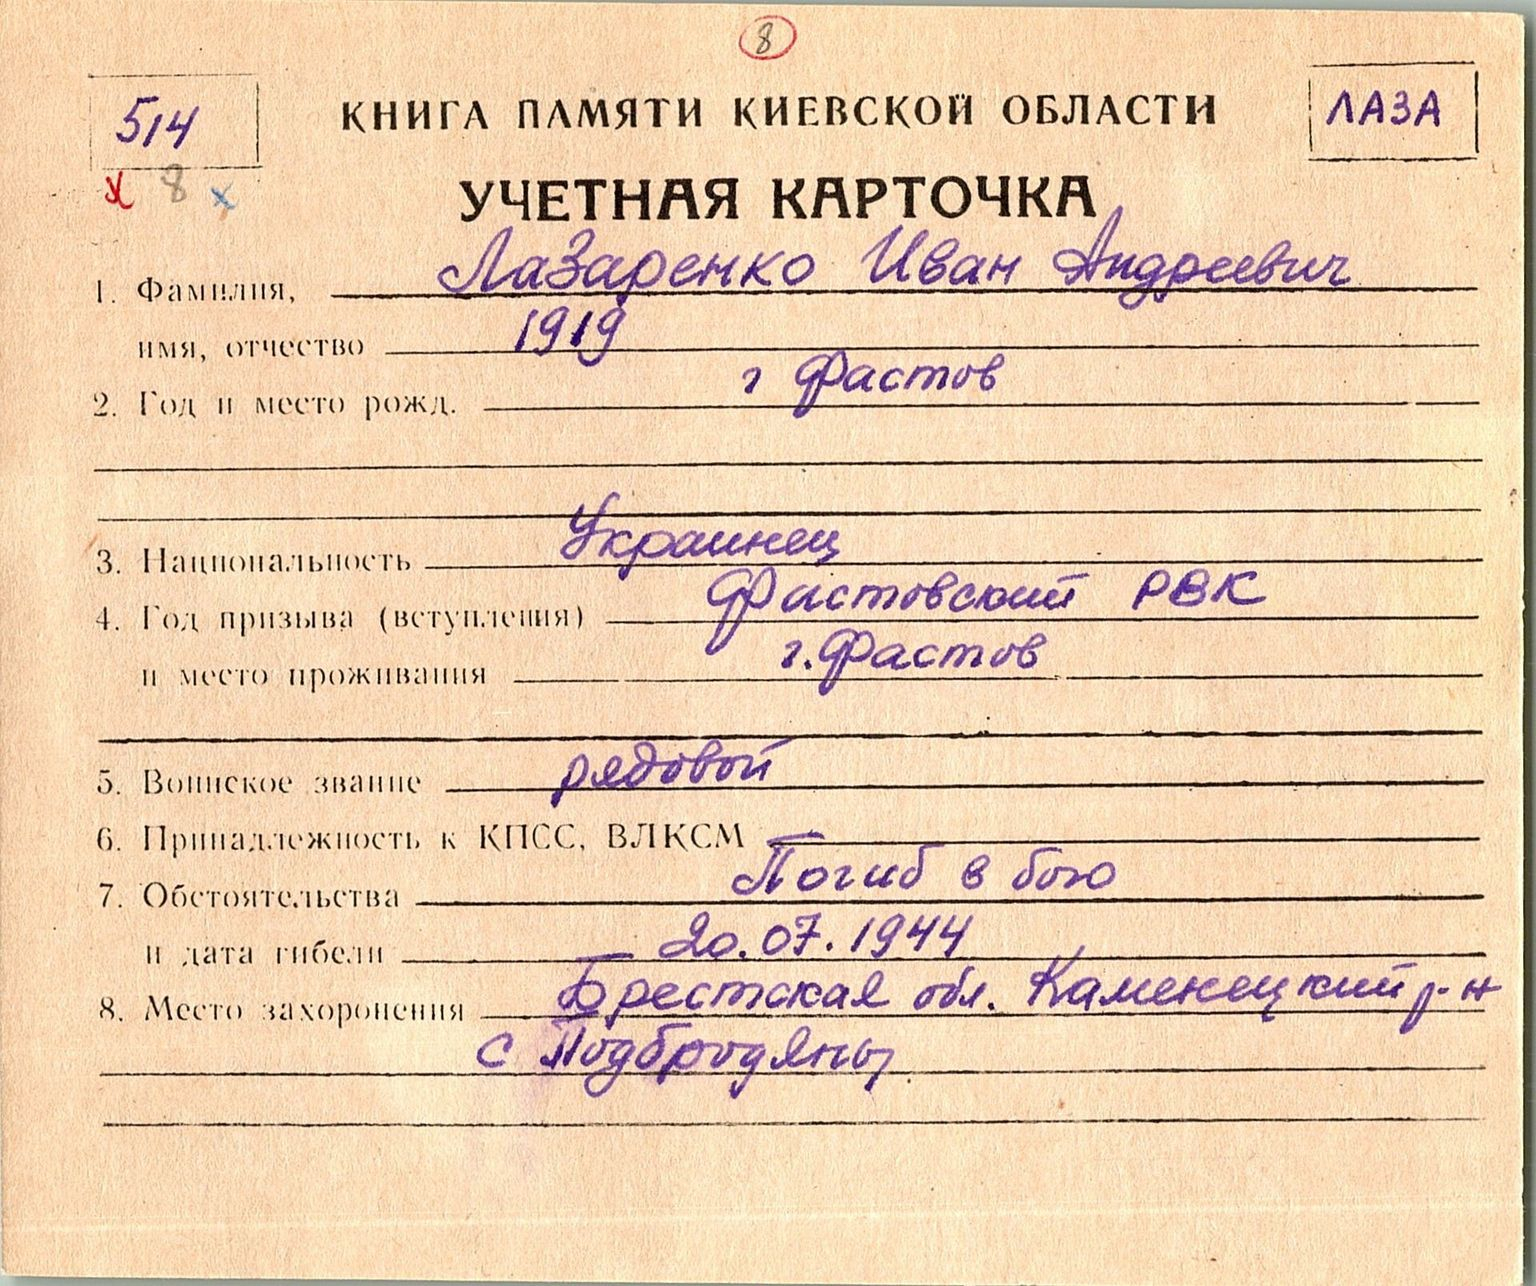 8
514
КНИГА ПАМЯТИ КИЕВСКОЙ ОБЛАСТИ
ЛАЗА
х 8 х
УЧЕТНАЯ КАРТОЧКА
1. Фамилия, Лазаренко Иван Андреевич
имя, отчество 1919
2. Год и место рожд. г Фастов
3. Национальность Украинец
4. Год призыва (вступления) Фастовский РВК
и место проживания г. Фастов
5. Воинское звание рядовой
6. Принадлежность к КПСС, ВЛКСМ
7. Обстоятельства Погиб в бою
и дата гибели 20.07.1944
8. Место захоронения Брестская обл. Каменецкий р-н
с Подбродяны